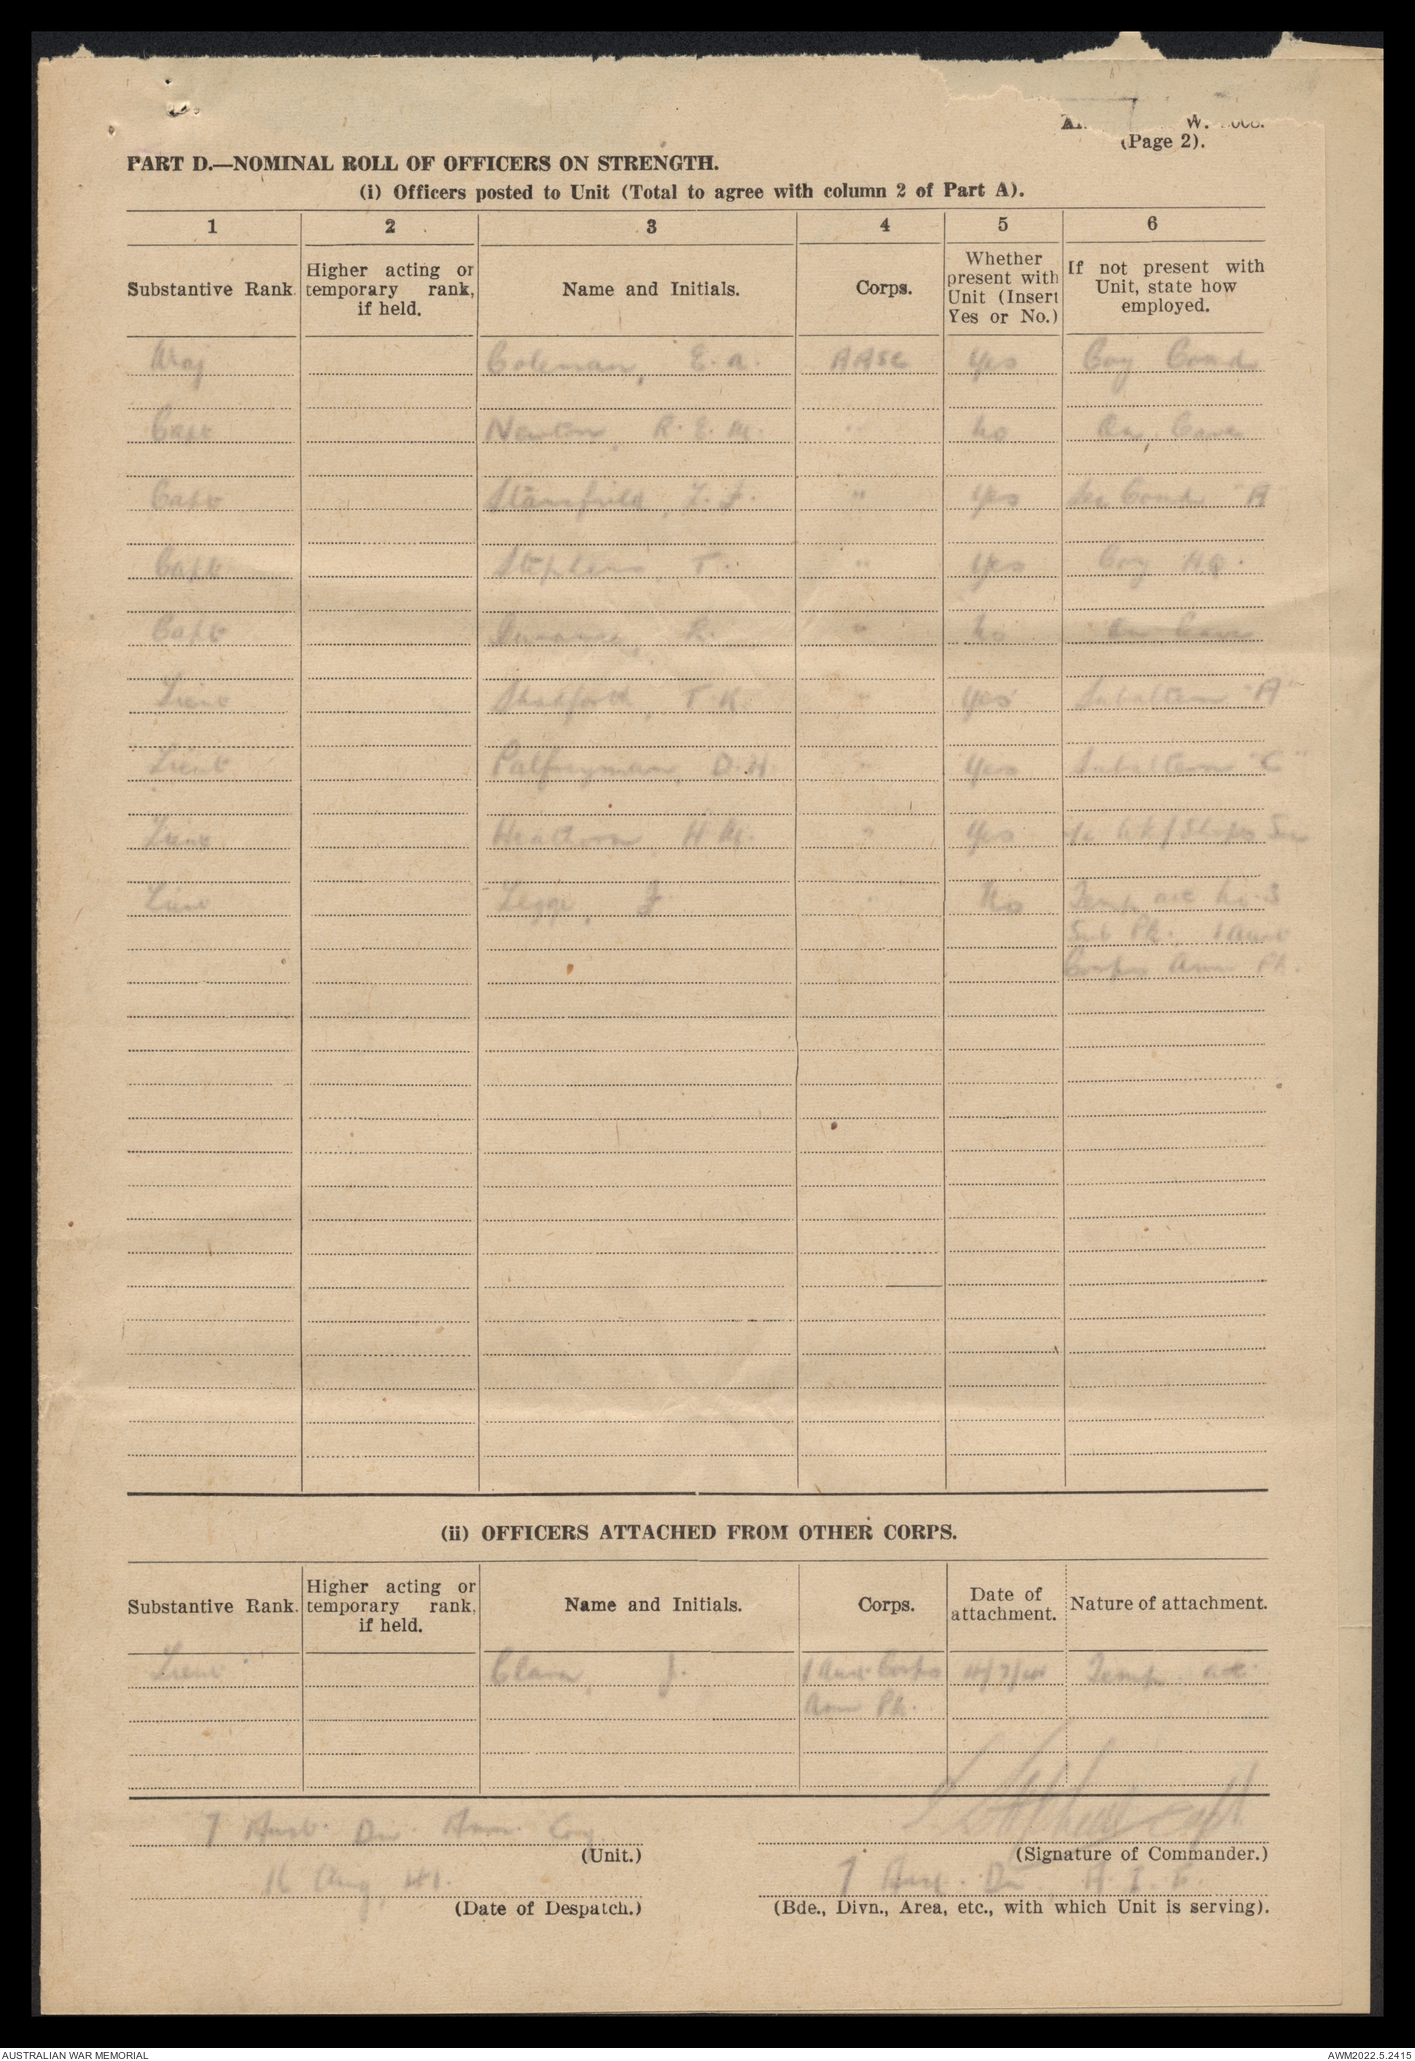 W.
(Page 2).
PART D.—NOMINAL ROLL OF OFFICERS ON STRENGTH.
(i) Officers posted to Unit (Total to agree with column 2 of Part A).
1 2 3 4 5 6
Substantive Rank. Higher acting or temporary rank, if held. Name and Initials. Corps. Whether present with Unit (Insert Yes or No.) If not present with Unit, state how employed.
Maj Coleman, E. A. AASC Yes Coy Comd
Capt Newton, R. E. M. " No On
Capt Stansfield, " Yes Sec Comd "A"
Capt Stephens, T. " Yes Coy HQ.
Capt R. " No On
Lieut Shadforth, T. K. " Yes Subaltern "A"
Lieut Palfreyman, D. H. " Yes Subaltern "C"
Lieut H. M. " Yes Sec
Lieut Legge, J. " No Temp att No. 3
Sub Pk. 1 Aust
Corps Amn Pk.
(ii) OFFICERS ATTACHED FROM OTHER CORPS.
Substantive Rank. Higher acting or temporary rank, if held. Name and Initials. Corps. Date of attachment. Nature of attachment.
Lieut J. 1 Aust Corps Temp att
Amn Pk.
7 Aust. Div. Amn. Coy
(Unit.) (Signature of Commander.)
16 Aug, 41. 7 Aust. Div. A. I. F.
(Date of Despatch.) (Bde., Divn., Area, etc., with which Unit is serving).
AUSTRALIAN WAR MEMORIAL AWM2022.5.2415